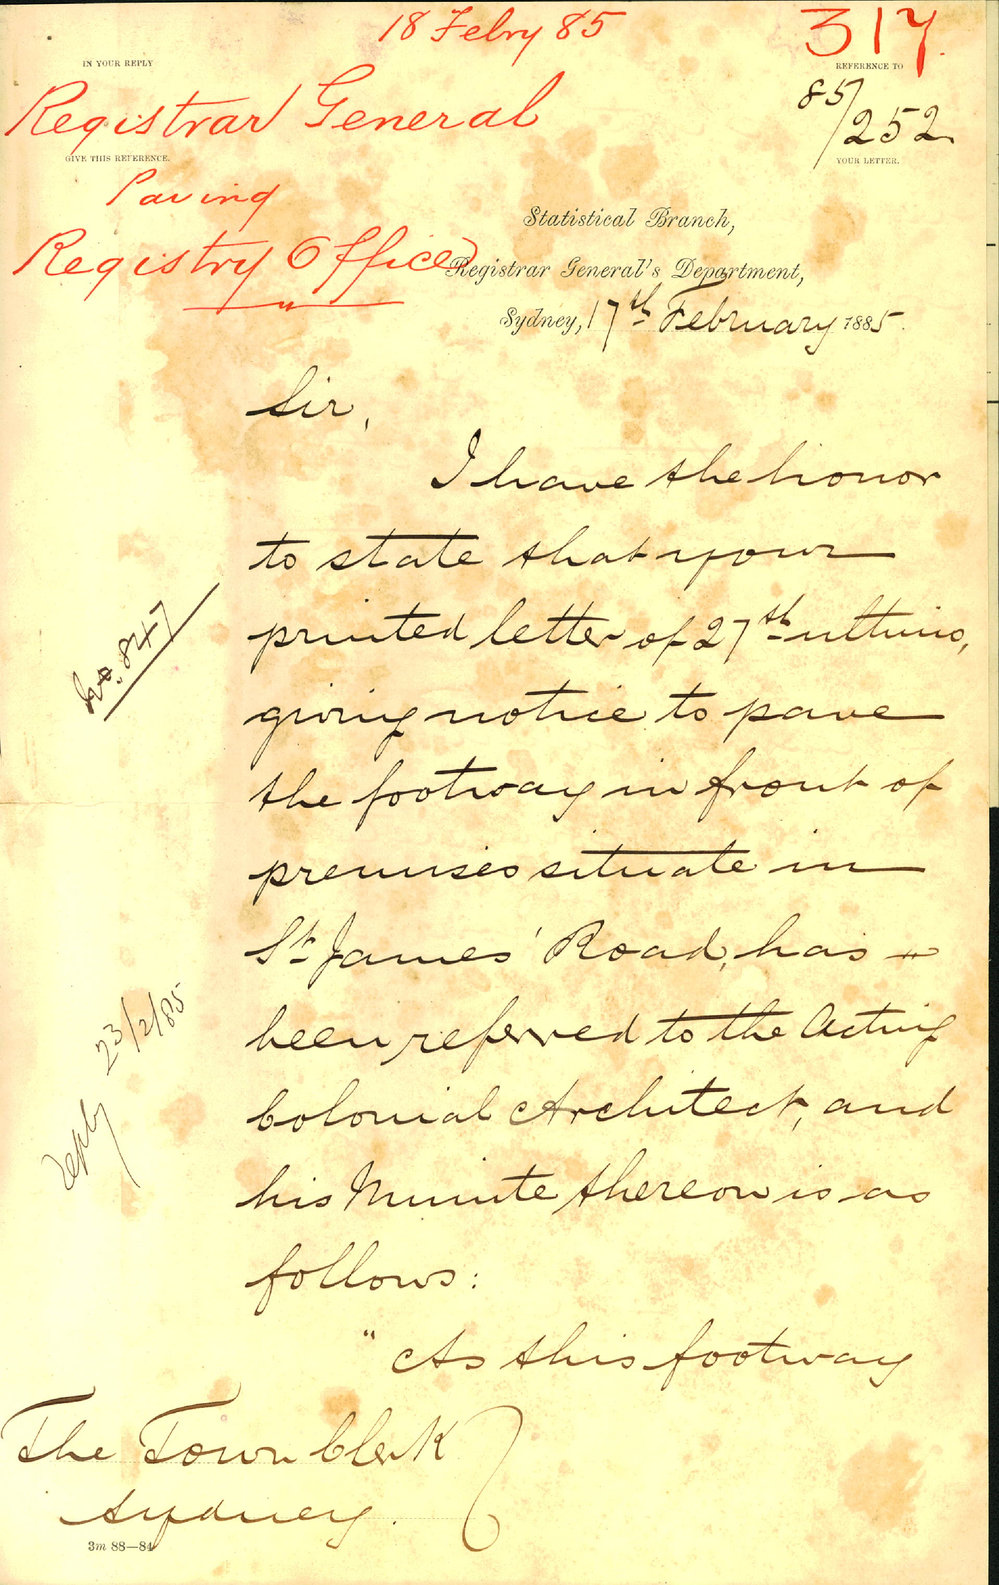 18 Febry 85
317
IN YOUR REPLY
REFERENCE TO
Registrar General
85/252
GIVE THIS REFERENCE.
YOUR LETTER.
Paving
Registry Office
Statistical Branch,
Registrar General's Department,
Sydney, 17th February 1885.
Sir,
I have the honor
to state that your
printed letter of 27th ultimo,
giving notice to pave
the footway in front of
premises situate in
St James' Road, has
been referred to the Acting
Colonial Architect, and
his Minute thereon is as
follows:
"As this footway
No. 847
Reply 23/2/85
The Town Clerk
Sydney.
3m 88—84